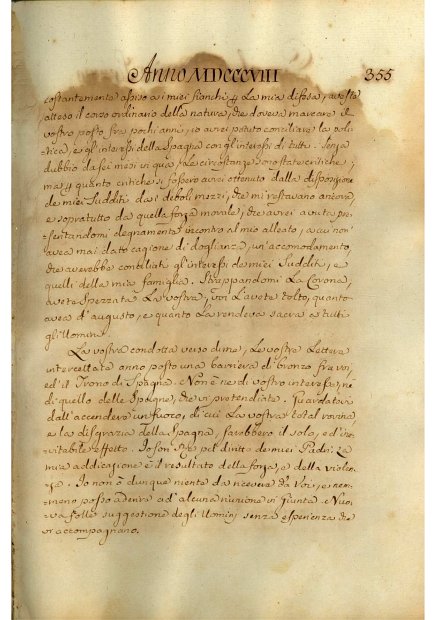 Anno MDCCCVIII 355
costantemente assiso ai miei fianchi La mia difesa, avesse
atteso il corso ordinario della natura, che doveva marcare il
vostro posto fra pochi anni, io avrei potuto conciliare la poli
tica, e gl'interessi della Spagna con gl'interessi di tutti. Senza
dubbio da sei mesi in qua, Le circostanze sono state critiche;
ma quanto critiche si fossero avrei ottenuto dalla disposizione
de miei Sudditi da i deboli mezzi, che mi restavano ancora,
e sopratutto da quella forza morale, che avrei avuta pre
sentandomi degnamente incontro al mio alleato, a cui non
avea mai dato cagione di doglianza, un'accomodamento,
che averebbe conciliati gl'interessi de miei Sudditi, e
quelli della mia famiglia. Strappandomi La Corona,
avete spezzata La vostra, voi L'avete tolto, quanto
avea d'augusto, e quanto La rendeva sacra a tutti
gli Uomini.
La vostra condotta verso di me, Le vostre Lettere
intercettate anno posto una barriera di bronzo fra voi,
ed il Trono di Spagna. Non è ne di vostro interesse, ne
di quello delle Spagne, che vi pretendiate. Guardatevi
dall'accendere un fuoco, di cui La vostra total rovina,
e la disgrazia della Spagna, sarebbero il solo, ed ine
vitabile effetto. Io son Re pel diritto de miei Padri. La
mia addicazione è il resultato della forza, e della violen
za. Io non ò dunque niente da ricevere da Voi, e nem
meno posso aderire ad alcuna riunione in Giunta
folle suggestione degli Uomini senza esperienza che
vi accompagnano.